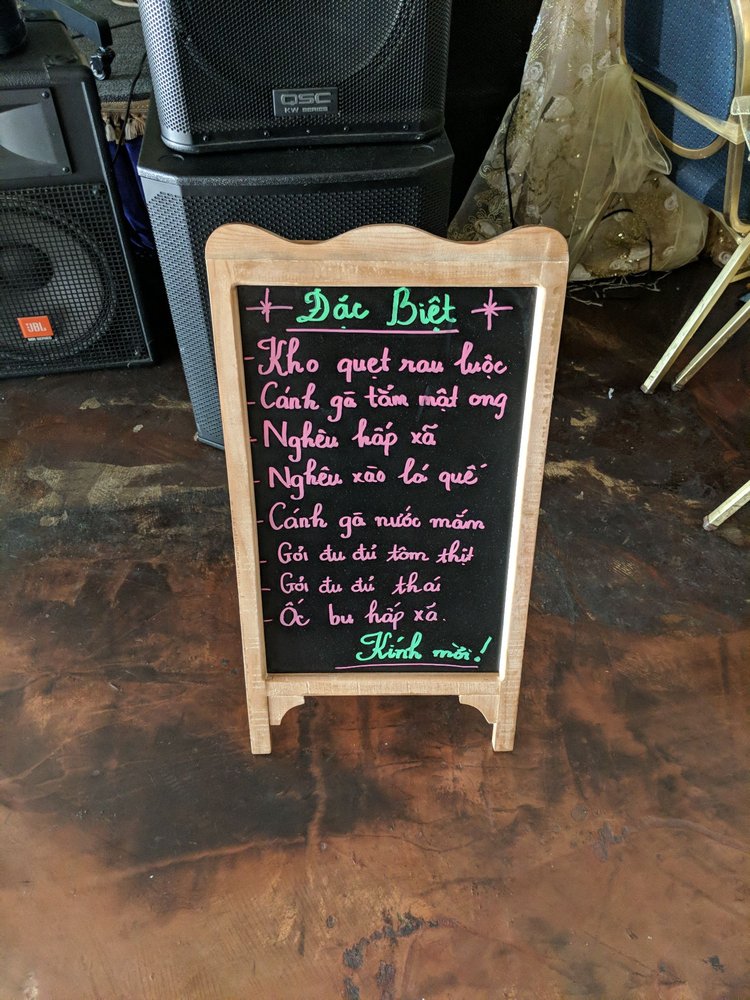 QSC
KW SERIES
JBL
Đặc Biệt
- Kho quẹt rau luộc
- Cánh gà tẩm mật ong
- Nghêu hấp xã
- Nghêu xào lá quế
- Cánh gà nước mắm
- Gỏi đu đủ tôm thịt
- Gỏi đu đủ thái
- Ốc bu hấp xã
Kính mời!